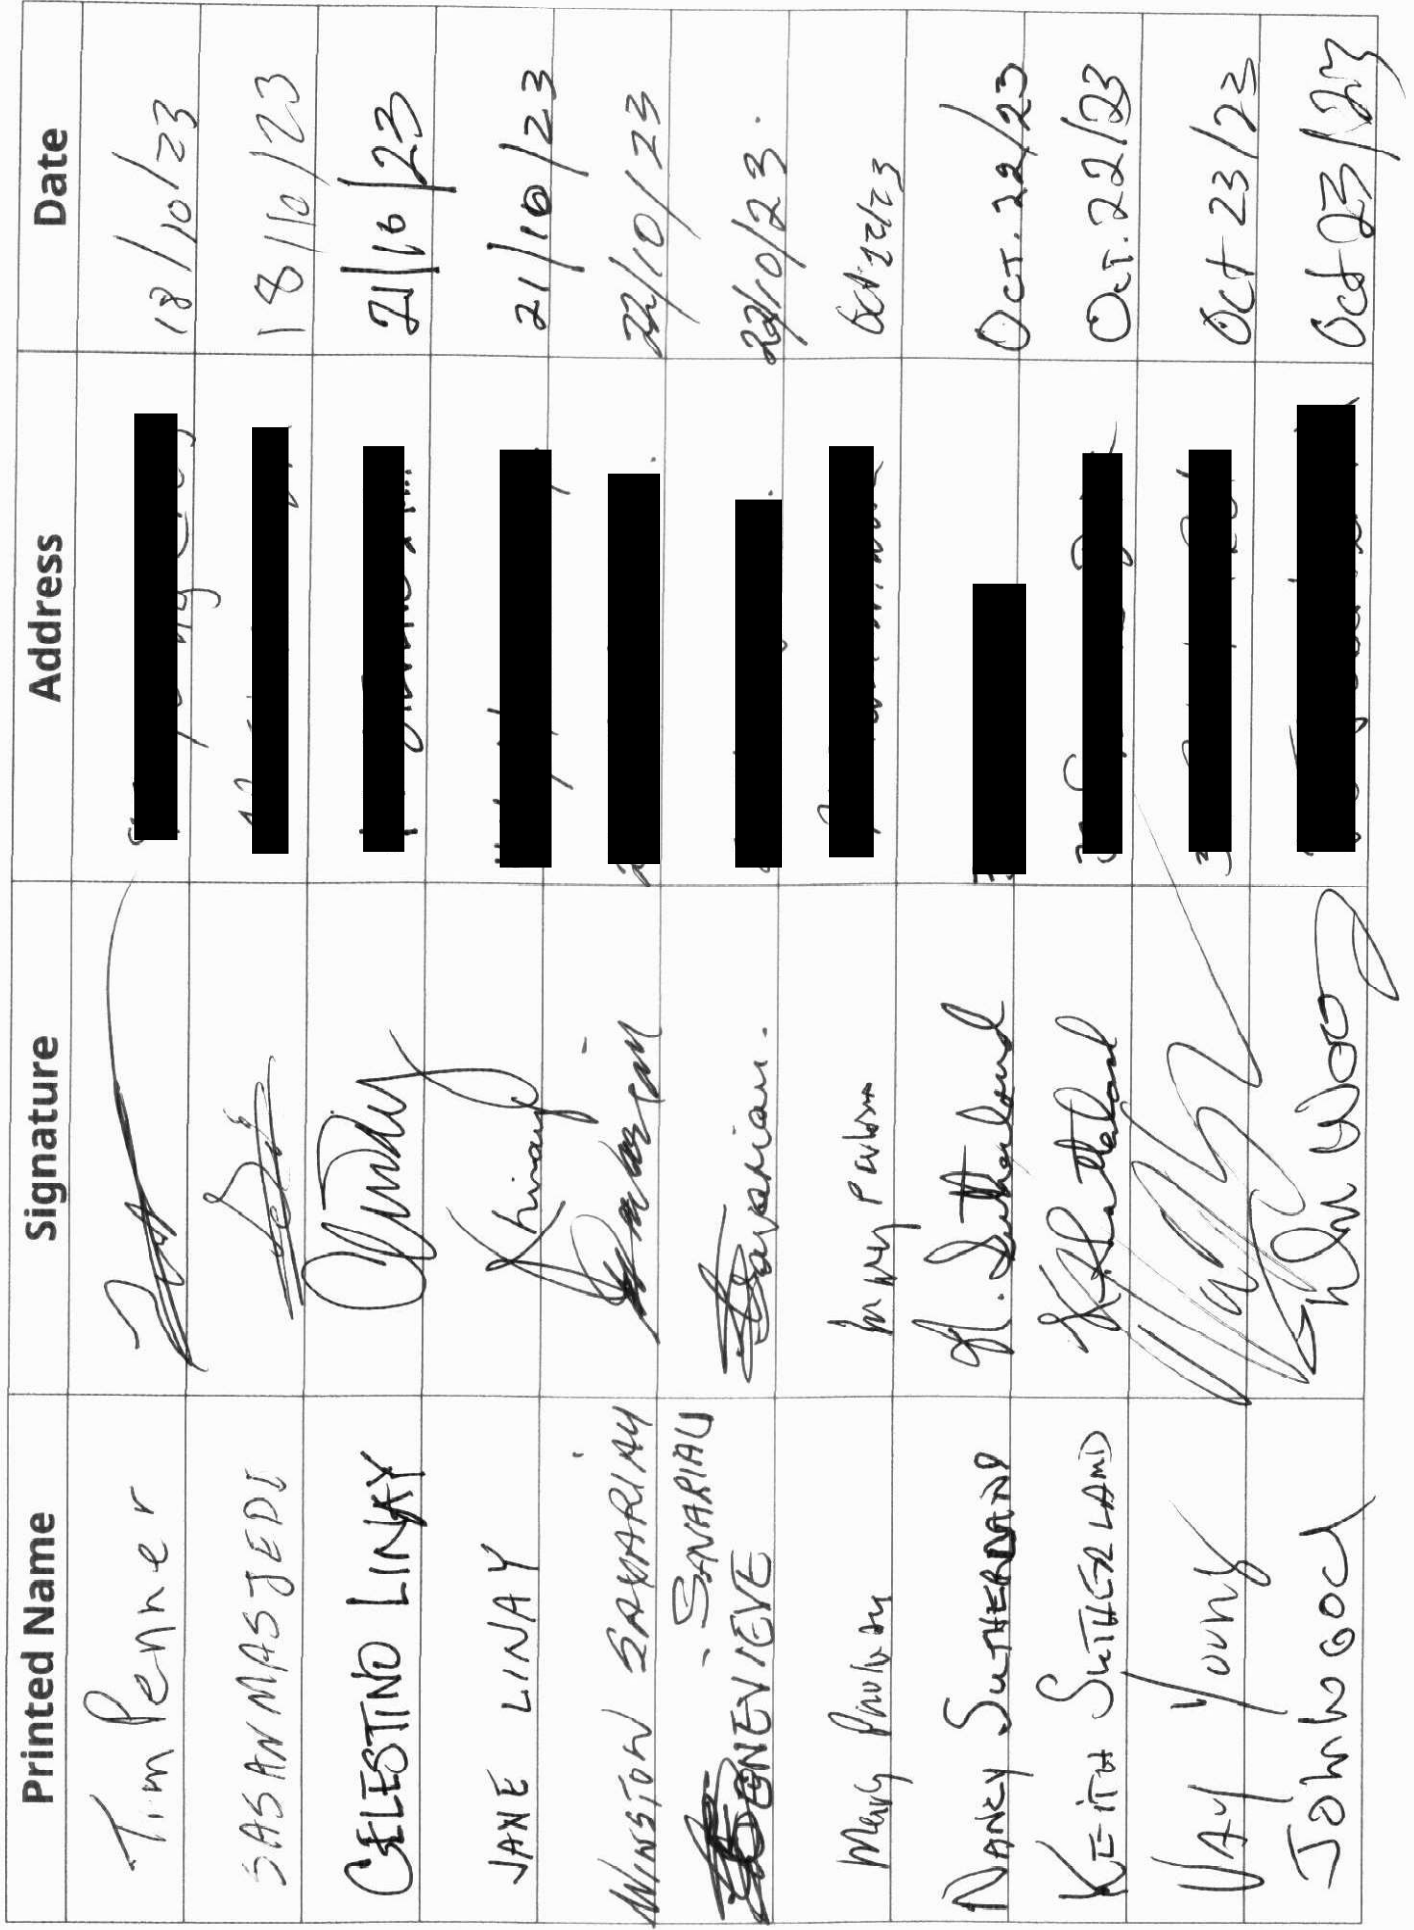 Printed Name Signature Address Date
Tim Penner 18/10/23
SASAN MASJEDI 18/10/23
CELESTINO LINAY 21/10/23
JANE LINAY 21/10/23
WINSTON SAVARIAU 22/10/23
GENEVIEVE - SAVARIAU Savariau. 22/10/23.
Mary Mary
NANCY SUTHERLAND N. Sutherland Oct. 22/23
KEITH SUTHERLAND K Sutherland Oct. 22/23
Young Oct 23/23
John Wood John Wood Oct 23/23